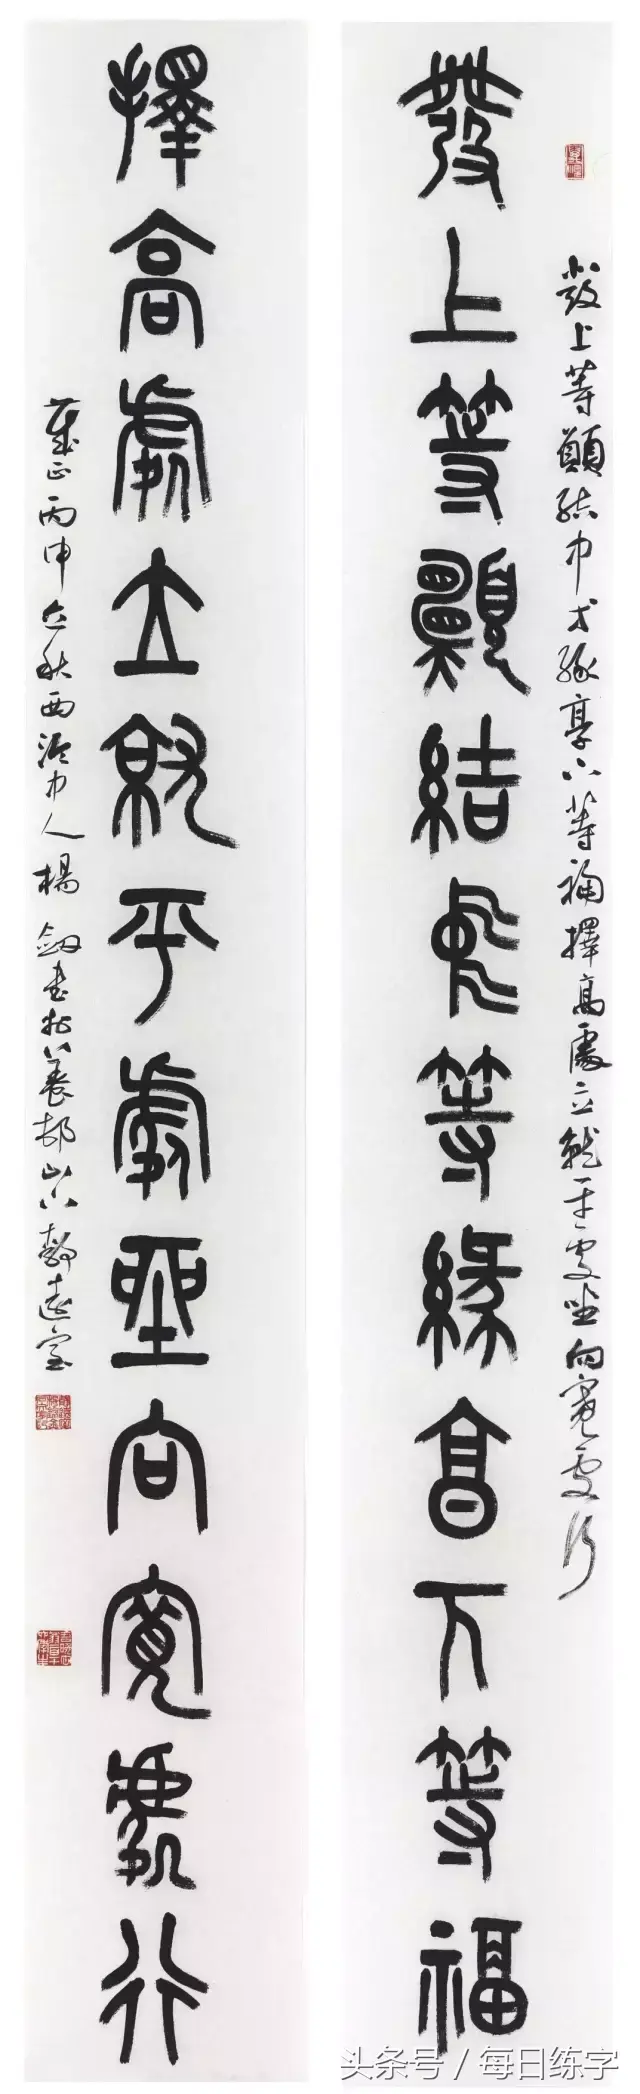 發上等願結中等緣享下等福擇高處立就平處坐向寬處行
發上等願結中等緣享下等福
擇高處立就平處坐向寬處行
丙申 秋西泠中人楊劍書於 靜遠室
头条号 / 每日练字